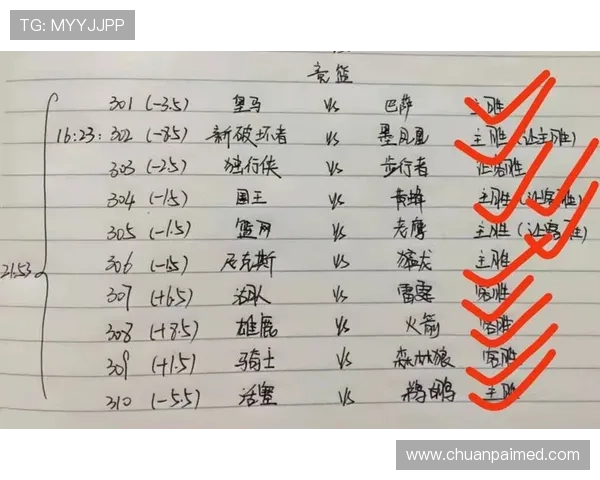 TG: MYYJJPP
竞篮
301 (-3.5) 皇马 VS 巴萨 主胜
16:23: 302 (-8.5) 新破坏者 VS 墨凤凰 主胜 (让主胜)
303 (-2.5) 独行侠 VS 步行者 让客胜
304 (-1.5) 国王 VS 黄蜂 主胜 (让客胜)
305 (-1.5) 篮网 VS 老鹰 主胜 (让客胜)
21:53 306 (-1.5) 尼克斯 VS 猛龙 主胜
307 (+6.5) VS 雷霆 客胜
308 (+8.5) 雄鹿 VS 火箭 客胜
309 (+1.5) 骑士 VS 森林狼 客胜
310 (-5.5) 活塞 VS 鹈鹕 主胜
www.chuanpaimed.com